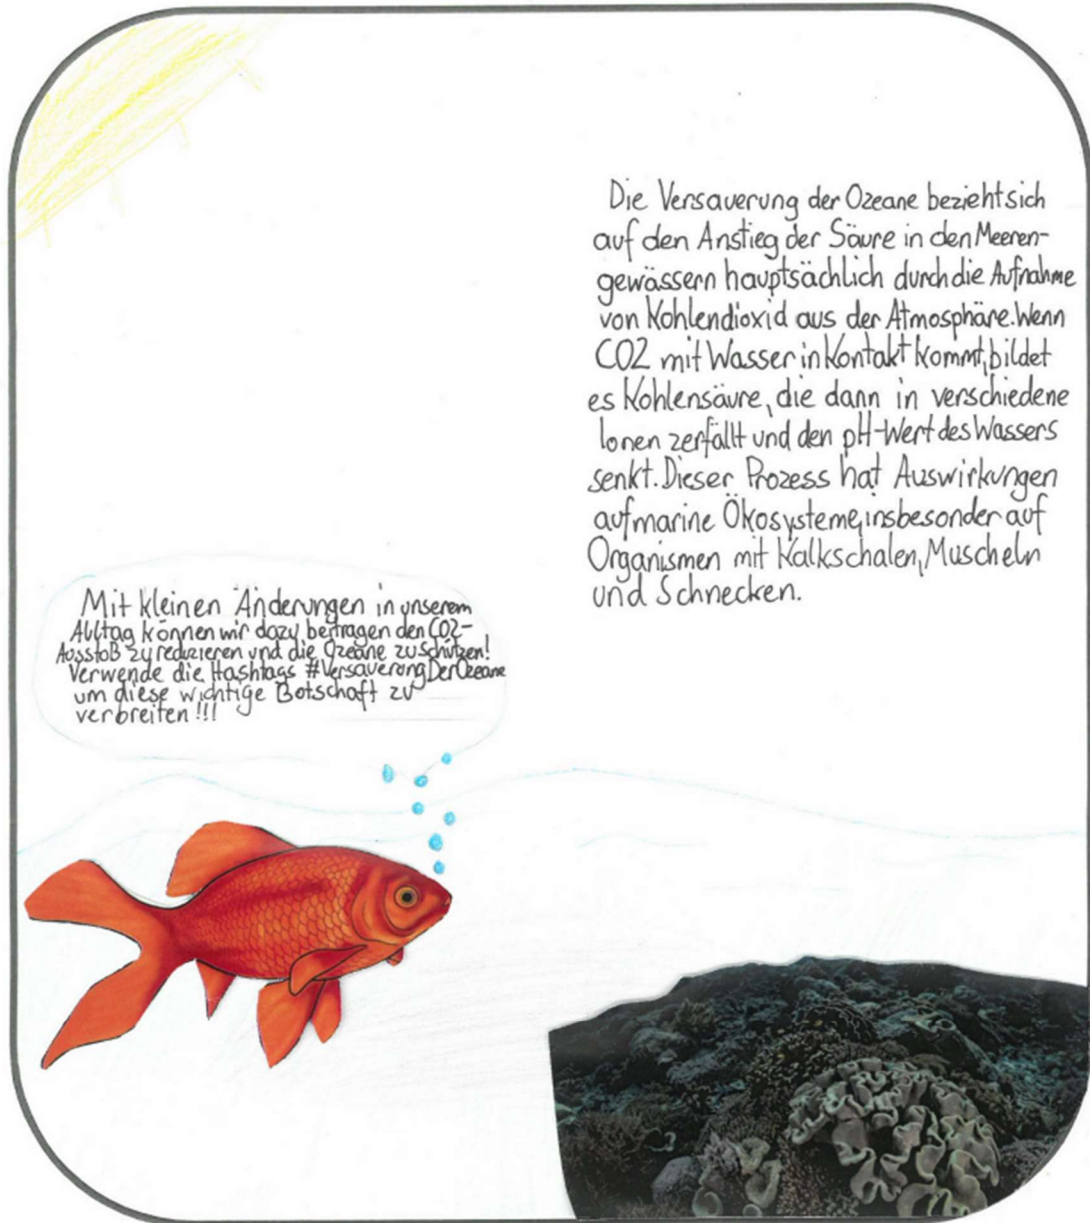 Die Versauerung der Ozeane bezieht sich
auf den Anstieg der Säure in den Meeren-
gewässern hauptsächlich durch die Aufnahme
von Kohlendioxid aus der Atmosphäre. Wenn
CO2 mit Wasser in Kontakt kommt, bildet
es Kohlensäure, die dann in verschiedene
Ionen zerfällt und den pH-Wert des Wassers
senkt. Dieser Prozess hat Auswirkungen
auf marine Ökosysteme, insbesonder auf
Organismen mit Kalkschalen, Muscheln
und Schnecken.
Mit kleinen Änderungen in unserem
Alltag können wir dazu beitragen den CO2-
Ausstoß zu reduzieren und die Ozeane zu schützen!
Verwende die Hashtags #VersauerungDerOzeane
um diese wichtige Botschaft zu
verbreiten!!!